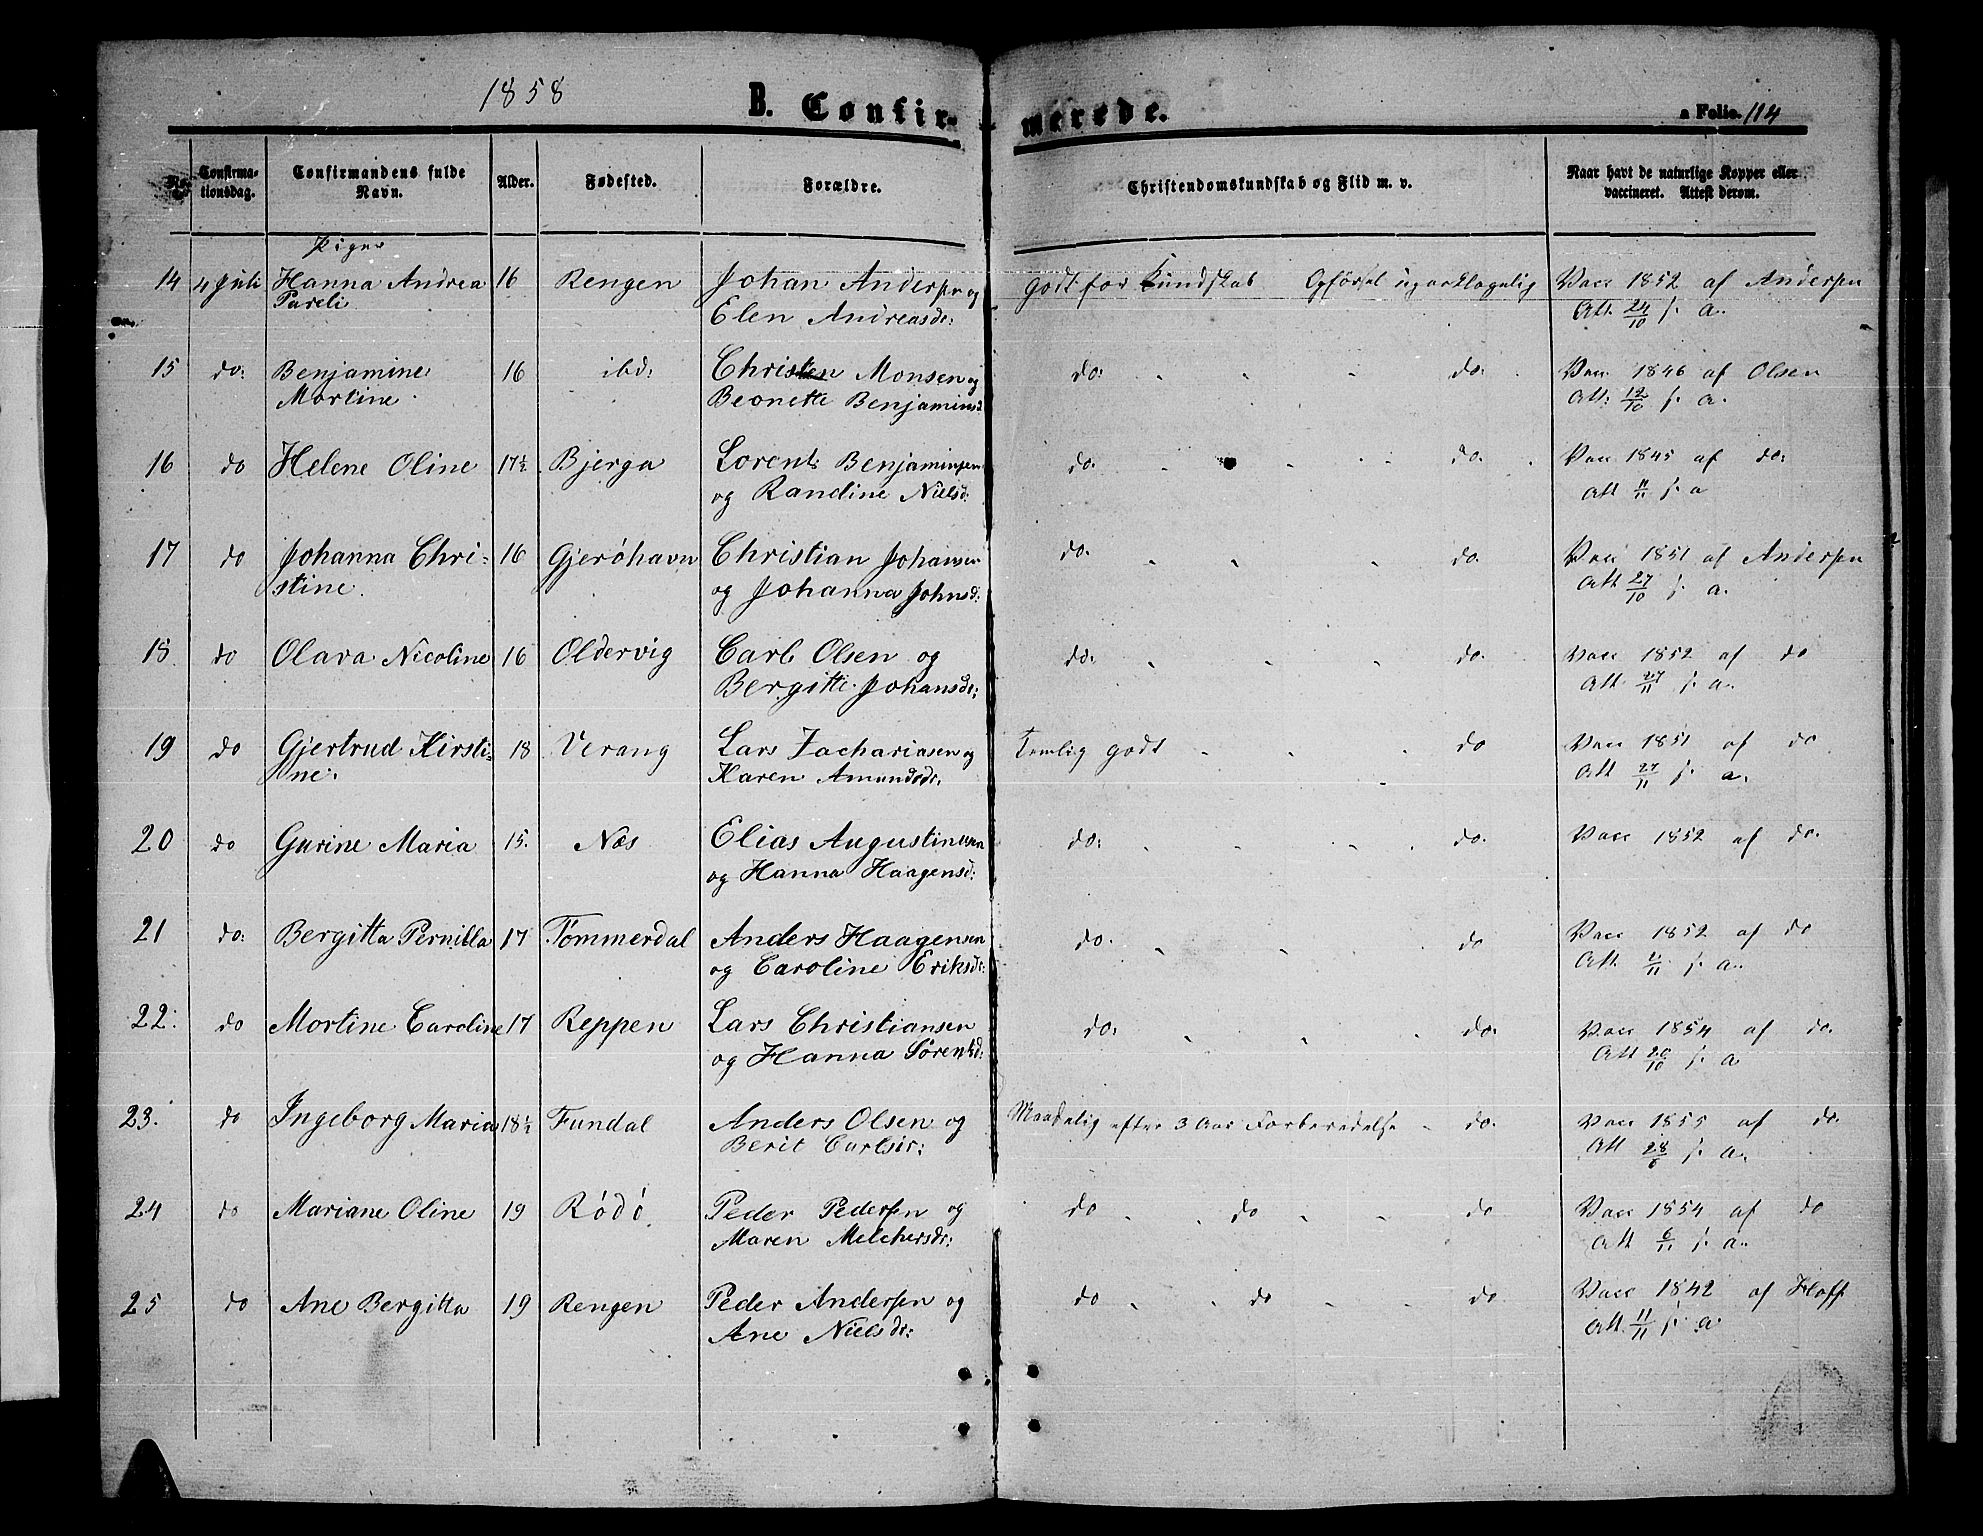 1858 B. Confirmerede. a Folio. 114
No. Confirmationsdag. Confirmandens fulde Navn. Alder. Fødested. Forældre. Christendomskundskab og Flid m. v. Naar havt de naturlige Kopper eller vaccineret. Attest derom.
Piger
14 4 Juli Hanna Andrea 16 Rengen Johan Andersen og godt for Kundskab Opførsel upaaklagelig Vacc 1852 af Andersen
Pareli Elen Andreasdr: Att. 24/10 s. a.
15 do: Benjamine 16 ibd: Christen Monsen og do: " " " do: Vacc 1846 af Olsen
Mortine. Beonette Benjamins: Att: 12/10 s. a.
16 do Helene Oline 17½ Bjerga Lorents Benjaminsen do. " " " do. Vacc 1845 af do:
og Randine Nielsd: Att 11/11 s. a
17 do Johanna Chri- 16 Gjeröhavn Christian Johansen do. " " " do. Vacc 1851 af Andersen
stine. og Johanna Johnsd: Att 27/10 s. a.
18 do Olava Nicoline 16 Oldervig Carl Olsen og do: " " " do. Vacc 1852 af do
Bergitte Johansdr: Att. 27/11 s. a.
19 do Gjertrud Kirsti- 18 Verang Lars Zachariasen og Temlig godt " " do Vacc 1851 af do
ne. Karen Amundsdr: Att 27/11 s. a.
20 do Gurine Maria 15. Næs Elias Augustinusen do: " " " do. Vacc 1852 af do.
og Hanna Haagensd:
21 do: Bergitta Pernilla 17 Tommerdal Anders Haagensen do. " " " do Vacc 1852 af do
og Caroline Eriksdr: Att 11/11 s. a.
22. do Mortine Caroline 17 Reppen Lars Christiansen do: " " " do. Vacc 1854 af do.
og Hanna Sörensd: Att 20/10 s. a
23. do Ingeborg Maria 18½ Fundal Anders Olsen og Maadelig efter 3 Aars Forberedelse " do. Vacc 1855 af do.
Berit Carlsdr: Att 28/6 s. a.
24 do Mariane Oline 19 Rödö Peder Pedersen og do " " do " " do Vacc 1854 af do
Maren Melchersdr: Att 6/11 s. a.
25 do Ane Bergitta 19 Rengen Peder Andersen og do " " do " " do Vacc 1842 af Hoff
Ane Nielsdr: Att. 11/11 s. a